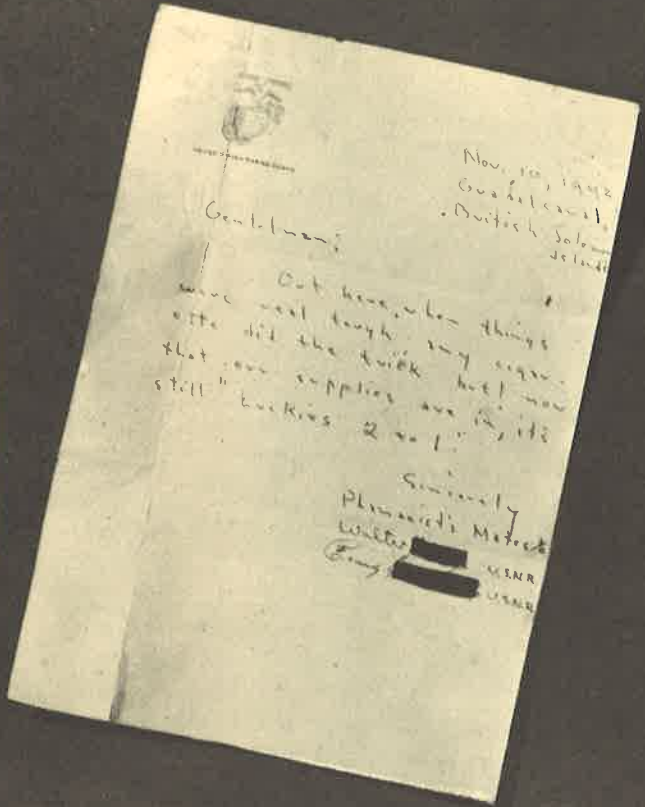 Nov. 10, 1942
Guadalcanal,
British Solomon
Islands
Gentelman;
Out here, when things
were real tough any cigar-
ette did the trick but! now
that our supplies are in, it's
still "Luckies 2 to 1".
Sincerely
Pharmacist's Mates
Walter USNR
USNR